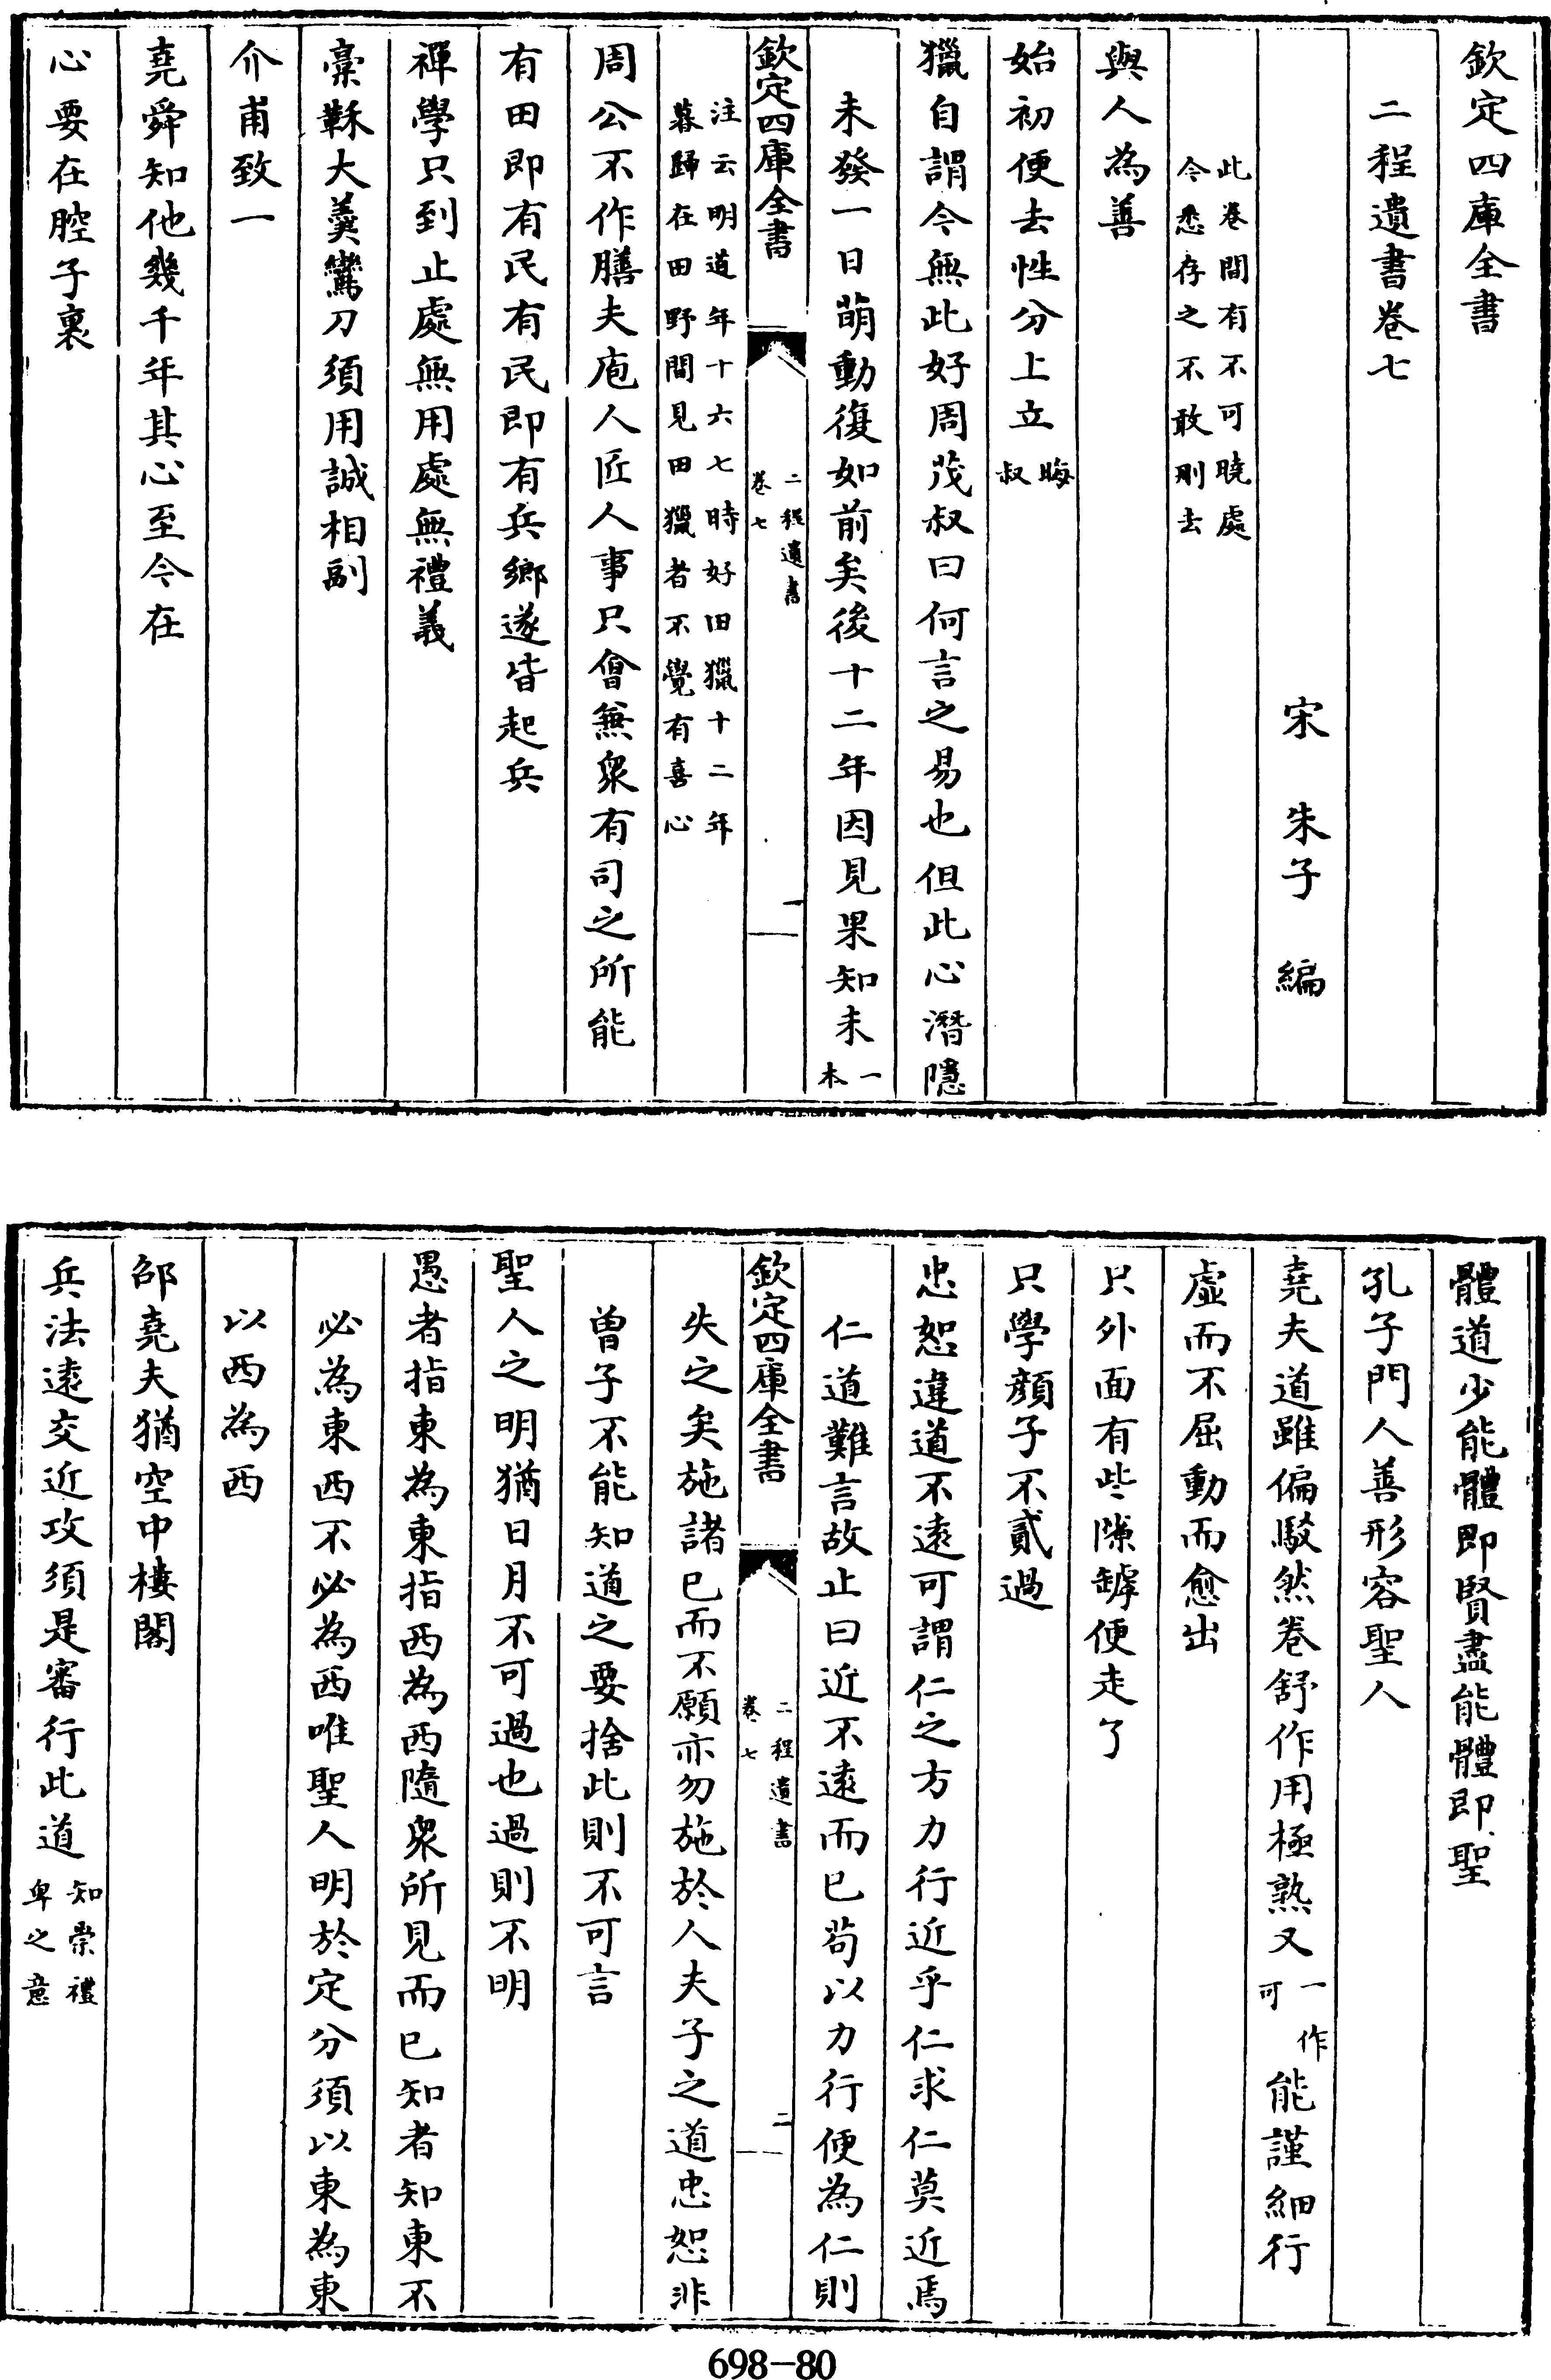 欽定四庫全書
二程遺書卷七
宋 朱子 編
此卷間有不可曉處
今悉存之不敢刪去
與人為善
始初便去性分上立
晦
叔
獵自謂今無此好周茂叔曰何言之易也但此心潛隱
未發一日萌動復如前矣後十二年因見果知未
一
本
欽定四庫全書
二程遺書
卷七
一
注云明道年十六七時好田獵十二年
暮歸在田野間見田獵者不覺有喜心
周公不作膳夫庖人匠人事只會兼衆有司之所能
有田即有民有民即有兵鄉遂皆起兵
禪學只到止處無用處無禮義
槀鞂大羹鸞刀須用誠相副
介甫致一
堯舜知他幾千年其心至今在
心要在腔子裏
體道少能體即賢盡能體即聖
孔子門人善形容聖人
堯夫道雖偏駁然卷舒作用極熟又
一作
可
能謹細行
虛而不屈動而愈出
只外面有些隙罅便走了
只學顏子不貳過
忠恕違道不遠可謂仁之方力行近乎仁求仁莫近焉
仁道難言故止曰近不遠而已茍以力行便為仁則
欽定四庫全書
二程遺書
卷七
二
失之矣施諸己而不願亦勿施於人夫子之道忠恕非
曾子不能知道之要捨此則不可言
聖人之明猶日月不可過也過則不明
愚者指東為東指西為西隨衆所見而已知者知東不
必為東西不必為西唯聖人明於定分須以東為東
以西為西
邵堯夫猶空中樓閣
兵法遠交近攻須是審行此道
知崇禮
卑之意
698-80